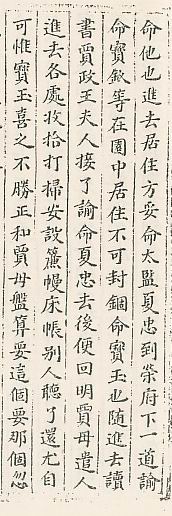 命他也進去居住方妥命太監夏忠到榮府下一道諭
命寳釵等在園中居住不可封錮命寳玉也随進去讀
書賈政王夫人接了諭命夏忠去後便回明賈母遣人
進去各處收拾打掃安設簾幔床帳别人聽了還尤自
可惟寳玉喜之不勝正和賈母盤算要這個要那個忽